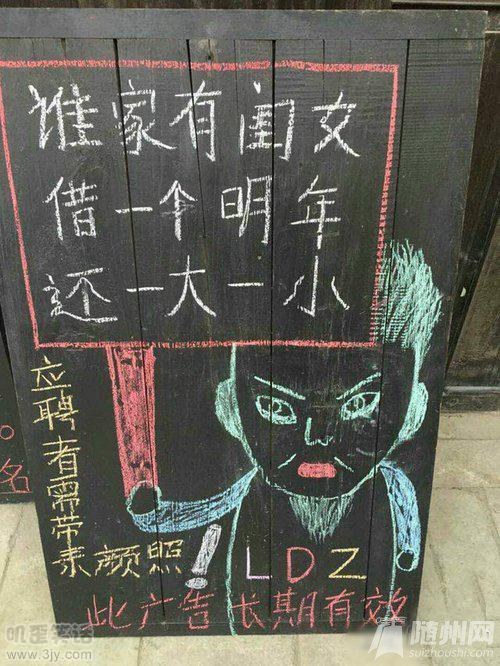 谁家有闺女
借一个明年
还一大一小
应聘者需带
素颜照!
LDZ
此广告长期有效
。名
叽歪笑话
www.3jy.com
随州网
suizhoushi.com